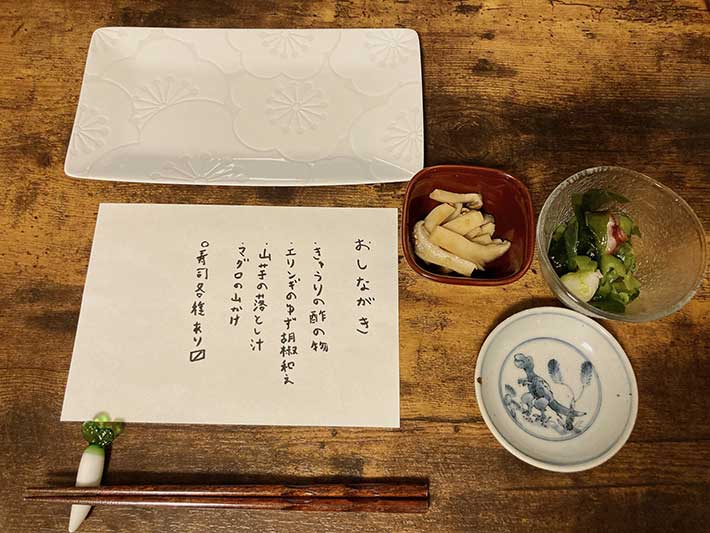 おしながき
・きゅうりの酢の物
・エリンギのゆず胡椒和え
・山芋の落とし汁
・マグロの山かけ
○寿司各種あり〼